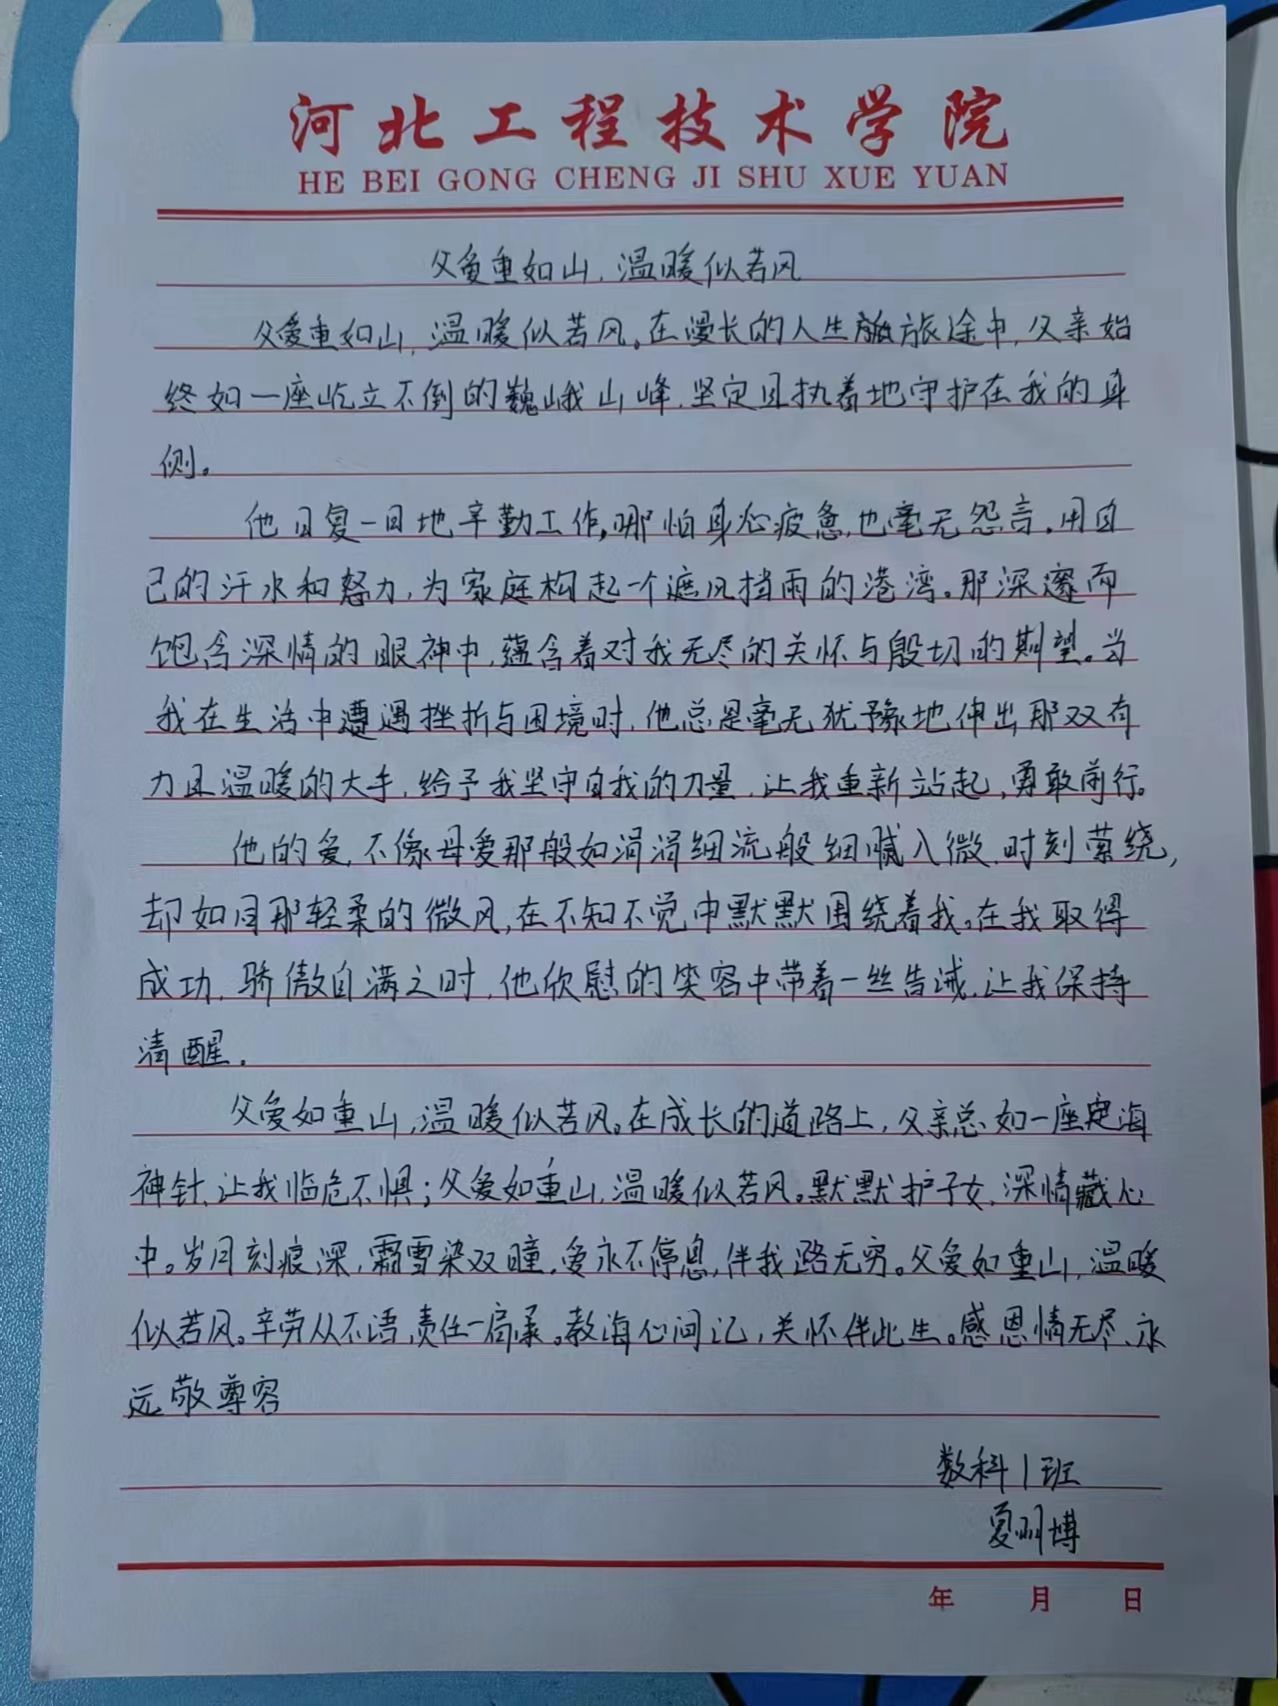 河北工程技术学院
HE BEI GONG CHENG JI SHU XUE YUAN
父爱重如山，温暖似若风
父爱重如山，温暖似若风。在漫长的人生旅途中，父亲始
终如一座屹立不倒的巍峨山峰，坚定且执着地守护在我的身
侧。
他日复一日地辛勤工作，哪怕身心疲惫，也毫无怨言，用自
己的汗水和努力，为家庭构起一个遮风挡雨的港湾。那深邃而
饱含深情的眼神中，蕴含着对我无尽的关怀与殷切的期望。当
我在生活中遭遇挫折与困境时，他总是毫无犹豫地伸出那双有
力且温暖的大手，给予我坚守自我的力量，让我重新站起，勇敢前行。
他的爱，不像母爱那般如涓涓细流般细腻入微，时刻萦绕，
却如同那轻柔的微风，在不知不觉中默默围绕着我。在我取得
成功，骄傲自满之时，他欣慰的笑容中带着一丝告诫，让我保持
清醒。
父爱如重山，温暖似若风。在成长的道路上，父亲总如一座定海
神针，让我临危不惧；父爱如重山，温暖似若风。默默护子女，深情藏心
中。岁月刻痕深，霜雪染双瞳，爱永不停息，伴我路无穷。父爱如重山，温暖
似若风。辛劳从不语，责任一肩承。教诲心间记，关怀伴此生。感恩情无尽，永
远敬尊容
数科1班
夏 博
年 月 日